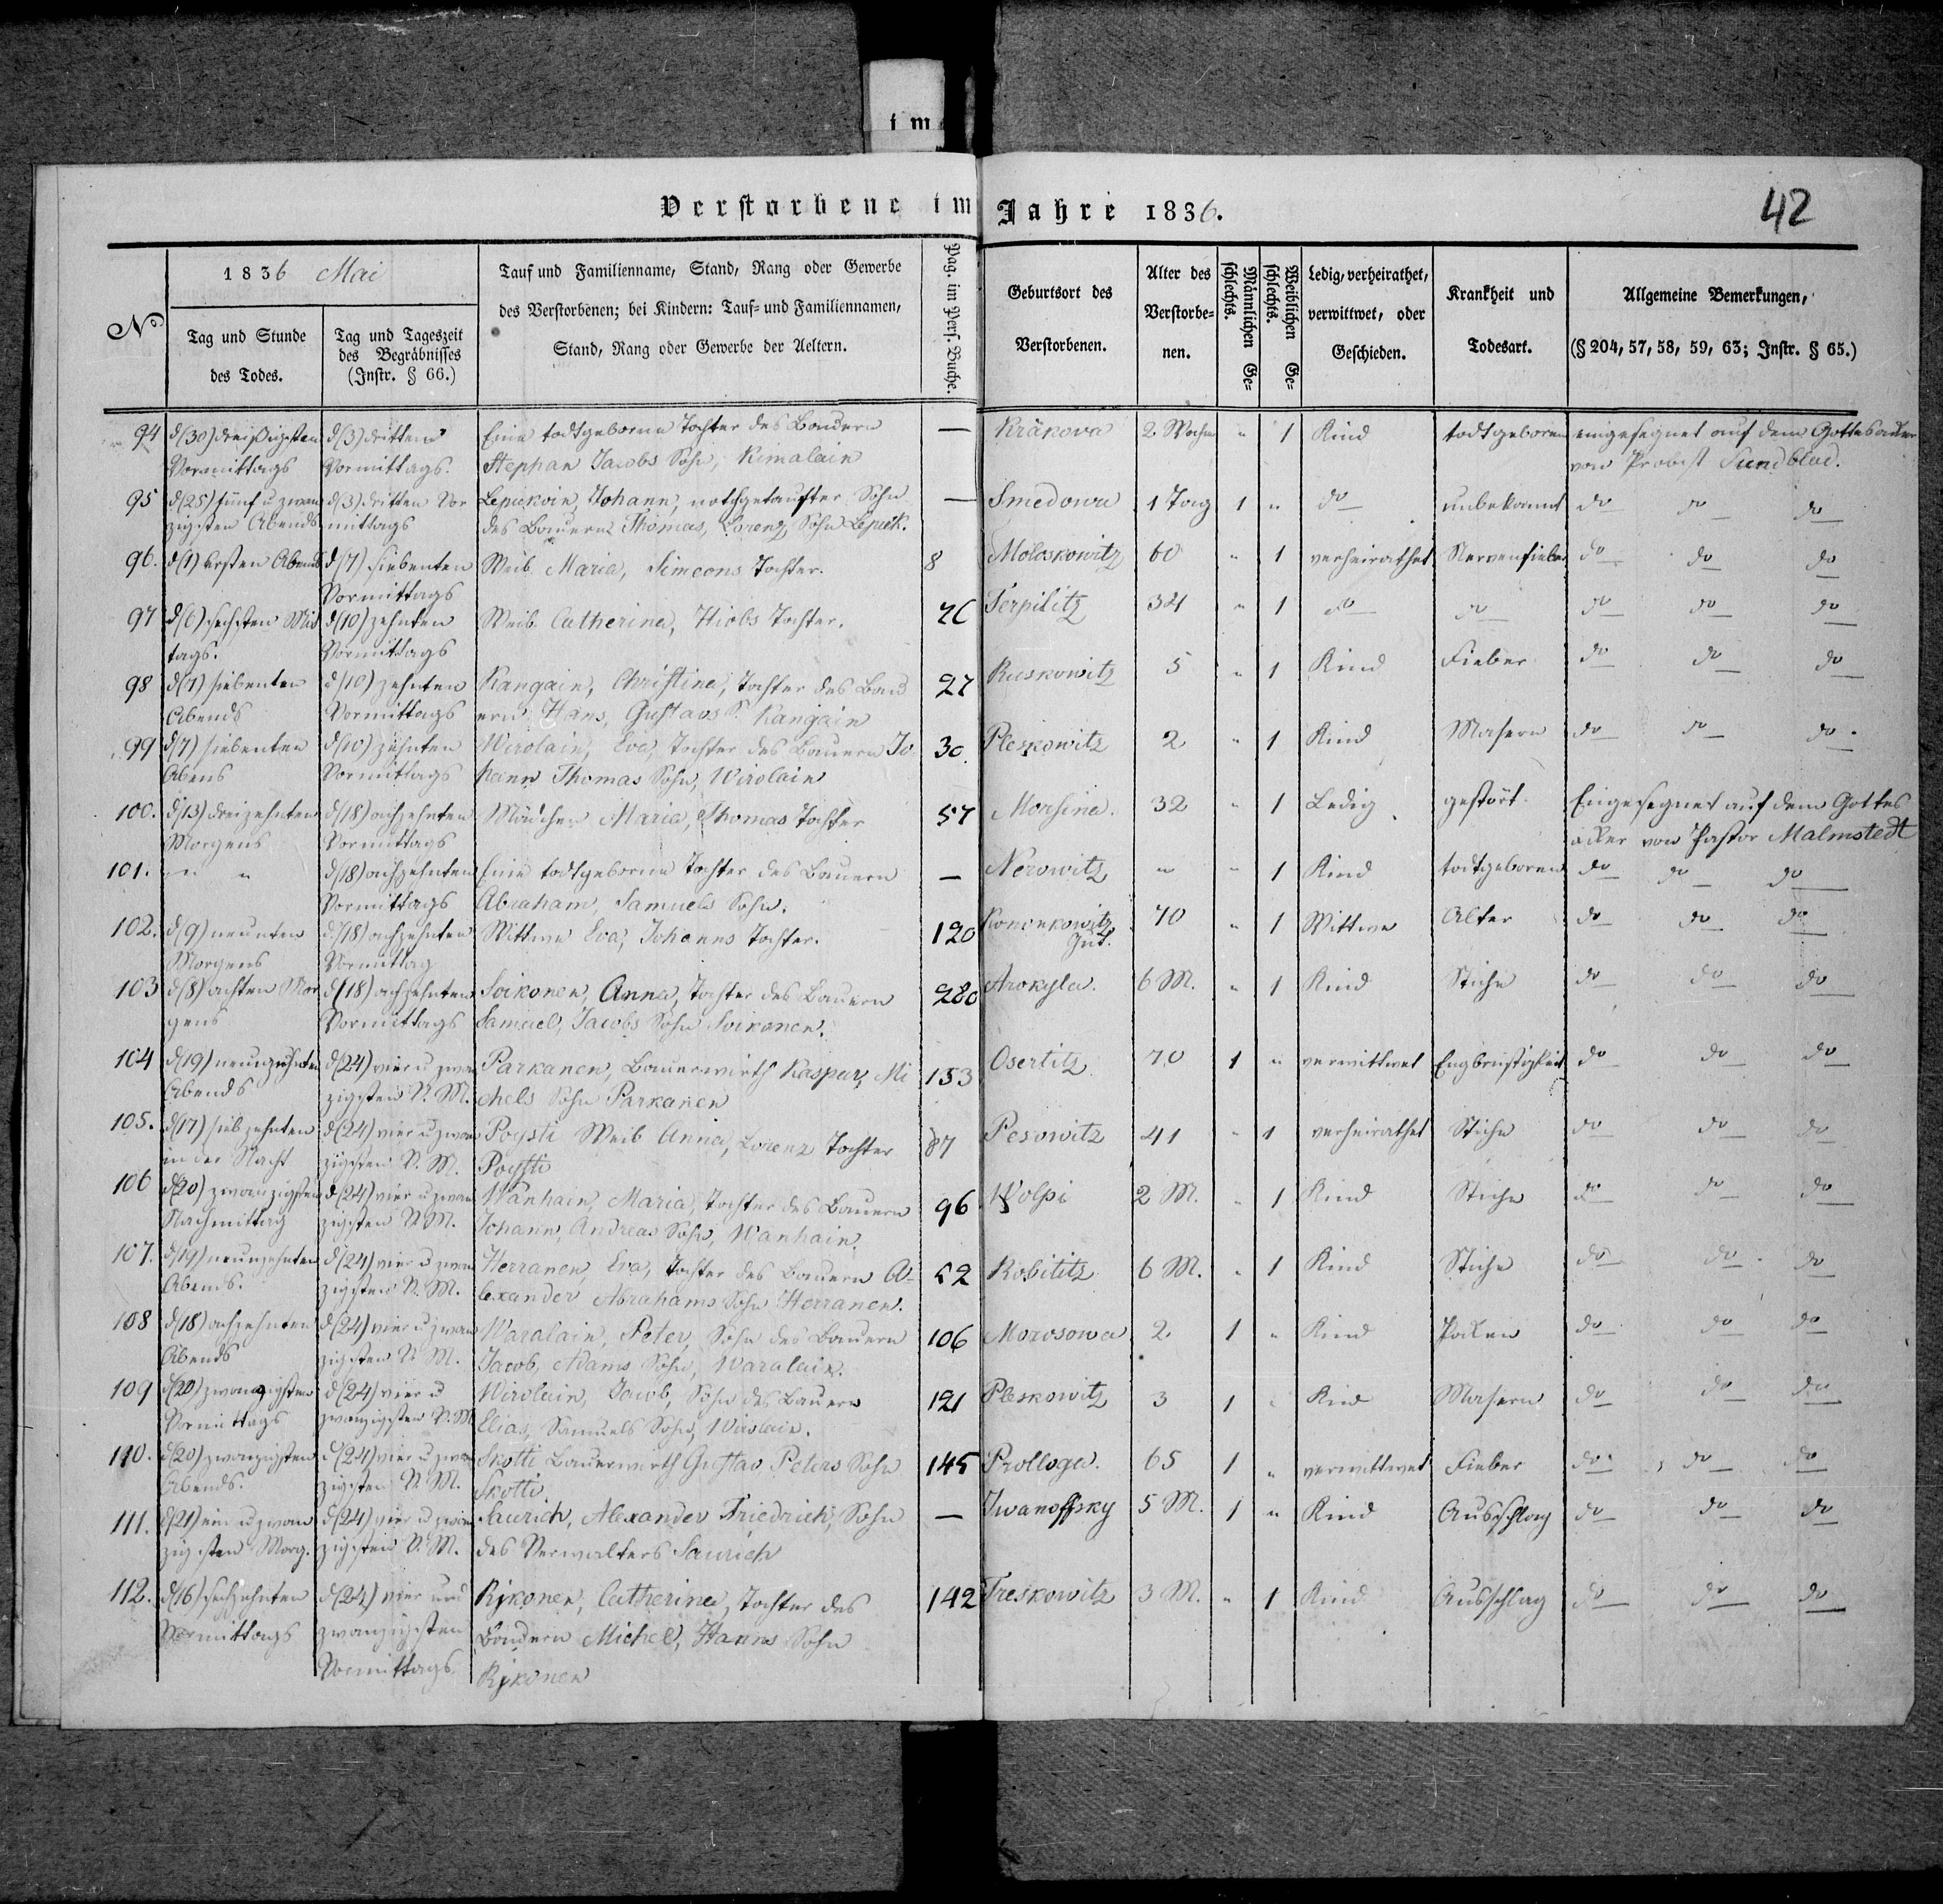 im
Verstorbene im Jahre 1836.
42
No
1836 Mai
Tag und Stunde
des Todes.
Tag und Tageszeit
des Begräbnisses
(Instr. § 66.)
Tauf und Familienname, Stand, Rang oder Gewerbe
des Verstorbenen; bei Kindern: Tauf- und Familiennamen,
Stand, Rang oder Gewerbe der Aeltern.
Pag. im Pers. Buche.
Geburtsort des
Verstorbenen.
Alter des
Verstorbe-
nen.
Männlichen Ge-
schlechts.
Weiblichen Ge-
schlechts.
Ledig, verheirathet,
verwittwet, oder
Geschieden.
Krankheit und
Todesart.
Allgemeine Bemerkungen,
(§ 204, 57, 58, 59, 63; Instr. § 65.)
94 d(30) dreißigsten d(3) dritten Eine todtgeborne Tochter des Bauern — Kräkova 2 " 1 Kind todtgeboren eingesegnet auf dem Gottesacker
Vormittags Vormittags. Stephan Jacobs Sohn, Kimalain von Probst Sundblad.
95 d(25) fünf u zwan d(3) dritten Vor Lepiäkoin, Johann, nothgetaufter Sohn — Smedowa 1 Tag 1 " do unbekannt do do do
zigsten Abends mittags des Bauern Thomas, Lorenz Sohn Lepiäk.
96. d(1) ersten Abends d(7) siebenten Weib Maria, Simeons Tochter. 8 Moloskowitz 60 " 1 verheirathet Nervenfieber do do do
Vormittags
97 d(6) sechsten Mit d(10) zehnten Weib Catherina, Hiobs Tochter. Terpilitz 34 " 1 do do do do do
tags. Vormittags
98 d(7) siebenten d(10) zehnten Kangain, Christina, Tochter des Bau 27 Ruskowitz 5 " 1 Kind Fieber do do do
Abends Vormittags ern Hans, Gustavs S. Kangain
99 d(7) siebenten d(10) zehnten Wirolain, Eva, Tochter des Bauern Jo- 30. Pleskowitz 2 " 1 Kind Masern do do do.
Abens Vormittags hann Thomas Sohn, Wirolain
100. d(13) dreizehnten d(18) achzehnten Mädchen Maria, Thomas Tochter 57 Morsina. 32 " 1 Ledig gestört. Eingesegnet auf dem Gottes
Morgens Vormittags acker von Pastor Malmstedt
101. " " d(18) achzehnten Eine todtgeborne Tochter des Bauern — Nerowitz " " 1 Kind todtgeboren do do do
Vormittags Abraham, Samuels Sohn.
102. d(9) neunten d(18) achzehnten Wittwe Eva, Johanns Tochter. 120 Kononkowitz 70 " 1 Wittwe Alter do do do
Morgens Vormittag
103 d(8) achten Mor d(18) achzehnten Soikonen, Anna, Tochter des Bauern 280 Arokyla. 6 M. " 1 Kind Stiche do do do
gens Vormittags Samuel, Jacobs Sohn Soikonen.
104 d(19) neunzehnten d(24) vier u zwan Parkanen, Bauerwirth Kaspar, Mi 153 Osertitz 70 1 " verwittwet Engbrüstigkeit do do do
Abends zigsten V. M. chels Sohn Parkanen
105. d(17) siebzehnten d(24) vier u zwan Poysti Weib Anna, Lorenz Tochter 87 Pesowitz 41 " 1 verheirathet Stiche do do do
in der Nacht zigsten V. M. Poysti
106 d(20) zwanzigsten d(24) vier u zwan Wanhain, Maria, Tochter des Bauern 96 Wolpi 2 M. " 1 Kind Stiche do do do
Nachmittag zigsten V. M. Johann, Andreas Sohn, Wanhain.
107. d(19) neunzehnten d(24) vier u zwan Herranen, Eva, Tochter des Bauern A- 52 Robititz 6 M. " 1 Kind Stiche do do do
Abends. zigsten V. M. lexander Abrahams Sohn Herranen.
108 d(18) achzehnten d(24) vier u zwan Waralain, Peter, Sohn des Bauern 106 Morosowa 2 1 " Kind Pocken do do do
Abends zigsten V. M. Jacob, Adams Sohn, Waralain.
109 d(20) zwanzigsten d(24) vier u Wirolain, Jacob, Sohn des Bauern 121 Pleskowitz 3 1 " Kind Masern do do do
Vormittags zwanzigsten V. M. Elias, Samuels Sohn, Wirolain.
110. d(20) zwanzigsten d(24) vier u zwan Skotti Bauerwirth Gustav, Peters Sohn 145 Prologa. 65 1 " verwittwet Fieber do do do
Abends. zigsten V. M. Skotti.
111. d(21) ein u zwan d(24) vier u zwan Saurich, Alexander Friedrich, Sohn — Iwanoffsky 5 M. 1 " Kind Ausschlag do do do
zigsten Morg. zigsten V. M. des Verwalters Saurich
112. d(16) sechzehnten d(24) vier und Rjkonen, Catherina, Tochter des 142 Treskowitz 3 M. " 1 Kind Ausschlag do do do
Vormittags zwanzigsten Bauern Michel, Hanns Sohn
Vormittags. Rjkonen